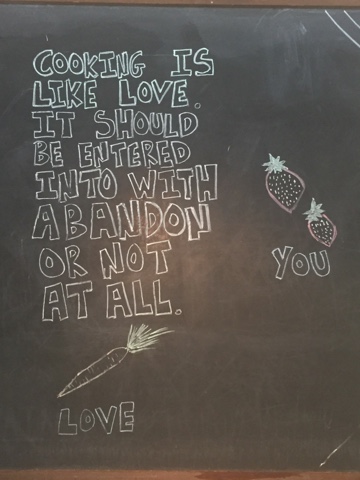 COOKING IS
LIKE LOVE.
IT SHOULD
BE ENTERED
INTO WITH
ABANDON
OR NOT
AT ALL.
YOU
LOVE